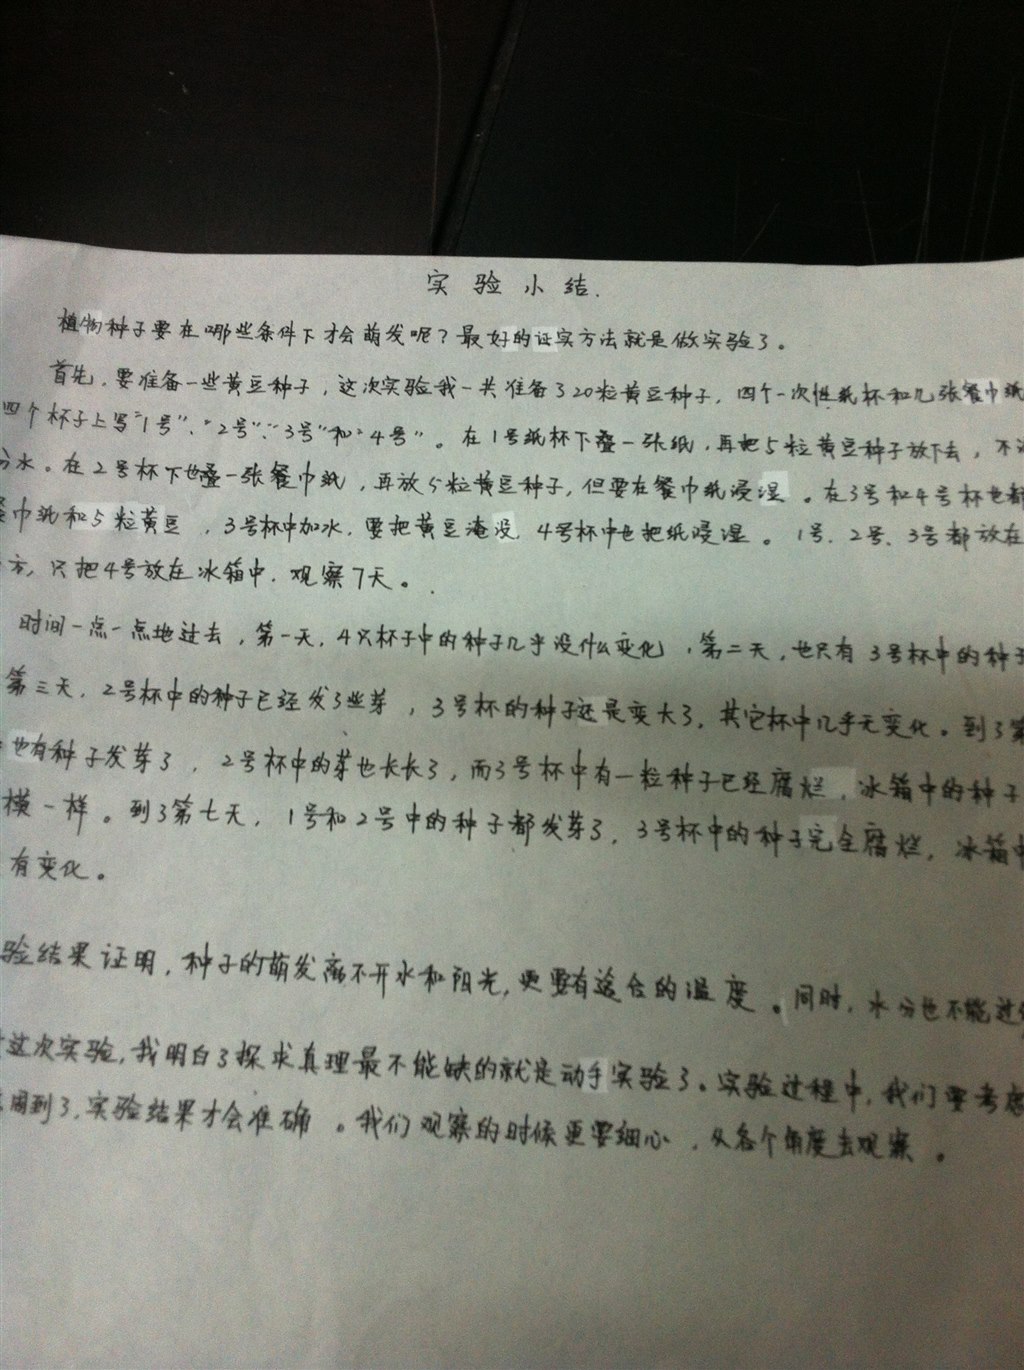 实验小结.
植物种子要在哪些条件下才会萌发呢？最好的证实方法就是做实验了。
首先，要准备一些黄豆种子，这次实验我一共准备了20粒黄豆种子，四个一次性纸杯和几张餐巾纸
四个杯子上写“1号”、“2号”、“3号”和“4号”。在1号纸杯下叠一张纸，再把5粒黄豆种子放下去，不
水。在2号杯下也叠一张餐巾纸，再放5粒黄豆种子，但要在餐巾纸浸湿。在3号和4号杯也都
巾纸和5粒黄豆，3号杯中加水，要把黄豆淹没，4号杯中也把纸浸湿。1号、2号、3号都放在
方，只把4号放在冰箱中，观察7天。
时间一点一点地过去，第一天，4只杯子中的种子几乎没什么变化，第二天，也只有3号杯中的种子
第三天，2号杯中的种子已经发了些芽，3号杯的种子还是变大了，其它杯中几乎无变化。到了第
也有种子发芽了，2号杯中的芽也长长了，而3号杯中有一粒种子已经腐烂，冰箱中的种子
模一样。到了第七天，1号和2号中的种子都发芽了，3号杯中的种子完全腐烂，冰箱中
有变化。
验结果证明，种子的萌发离不开水和阳光，更要有适合的温度。同时，水分也不能过
这次实验，我明白了探求真理最不能缺的就是动手实验了。实验过程中，我们要考虑
周到了，实验结果才会准确。我们观察的时候更要细心，从各个角度去观察。